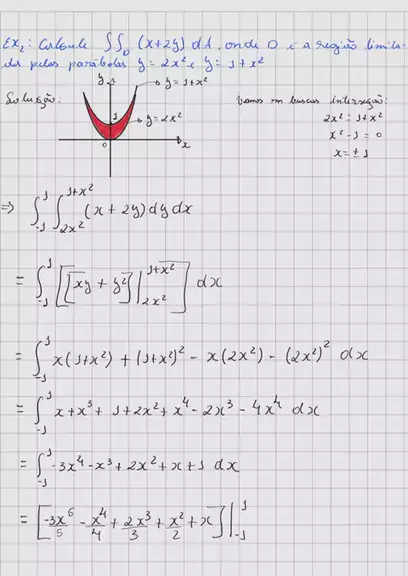 Ex₂: Calcule ∫∫_D (x+2y) dA, onde D é a região limita-
da pelas parábolas y = 2x² e y = 1+x²
Solução:
y
y = 1+x²
1
y = 2x²
0
x
Vamos em buscar interseção:
2x² = 1+x²
x² - 1 = 0
x = ± 1
⇒ ∫_{-1}^{1} ∫_{2x²}^{1+x²} (x + 2y) dy dx
= ∫_{-1}^{1} [[xy + y²]|_{2x²}^{1+x²}] dx
= ∫_{-1}^{1} x(1+x²) + (1+x²)² - x(2x²) - (2x²)² dx
= ∫_{-1}^{1} x + x³ + 1 + 2x² + x⁴ - 2x³ - 4x⁴ dx
= ∫_{-1}^{1} -3x⁴ - x³ + 2x² + x + 1 dx
= [-3x⁵/5 - x⁴/4 + 2x³/3 + x²/2 + x]|_{-1}^{1}